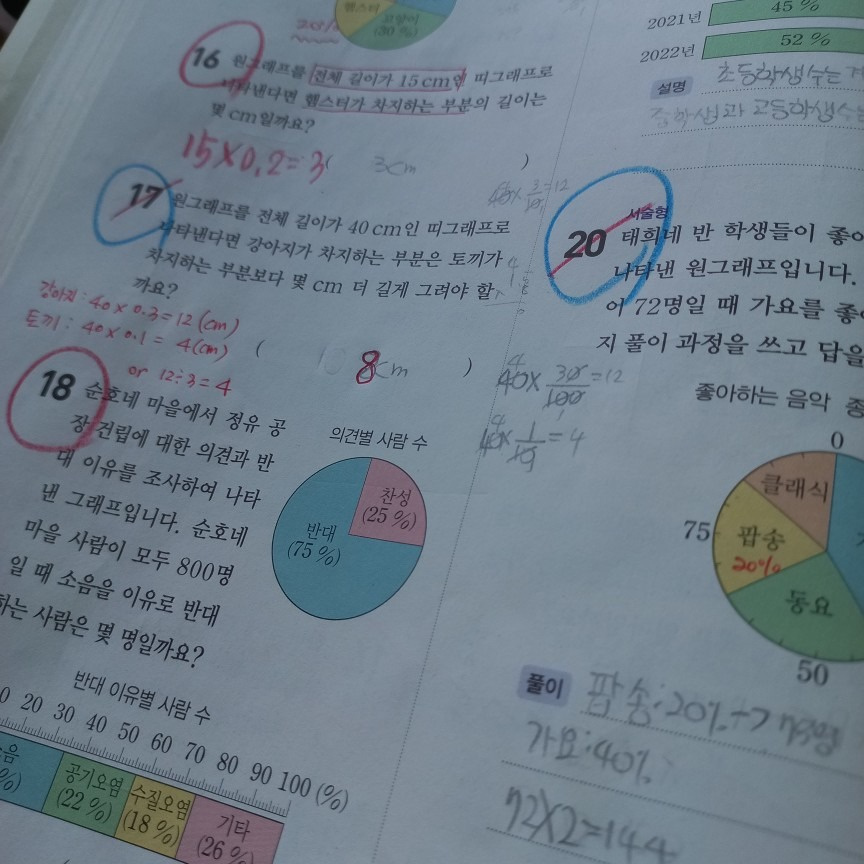 햄스터
고양이
(30 %)
16 원그래프를 전체 길이가 15 cm인 띠그래프로
나타낸다면 햄스터가 차지하는 부분의 길이는
몇 cm일까요?
15×0.2=3
( 3cm )
17 원그래프를 전체 길이가 40 cm인 띠그래프로
나타낸다면 강아지가 차지하는 부분은 토끼가
차지하는 부분보다 몇 cm 더 길게 그려야 할
까요?
강아지: 40×0.3=12(cm)
토끼: 40×0.1= 4(cm)
or 12÷3=4
( 8cm )
18 순호네 마을에서 정유 공
장 건립에 대한 의견과 반
대 이유를 조사하여 나타
낸 그래프입니다. 순호네
마을 사람이 모두 800명
일 때 소음을 이유로 반대
하는 사람은 몇 명일까요?
의견별 사람 수
찬성
(25 %)
반대
(75 %)
반대 이유별 사람 수
0 20 30 40 50 60 70 80 90 100 (%)
음
%)
공기오염
(22 %)
수질오염
(18 %)
기타
(26 %)
40× 30/100 =12
40× 1/10 =4
2021년 45 %
2022년 52 %
설명 초등학생 수는
중학생과 고등학생 수는
서술형
20 태희네 반 학생들이 좋아
나타낸 원그래프입니다.
어 72명일 때 가요를 좋아
지 풀이 과정을 쓰고 답을
좋아하는 음악
0
클래식
75
팝송
20%
동요
50
풀이 팝송:20%→72명
가요:40%
72×2=144